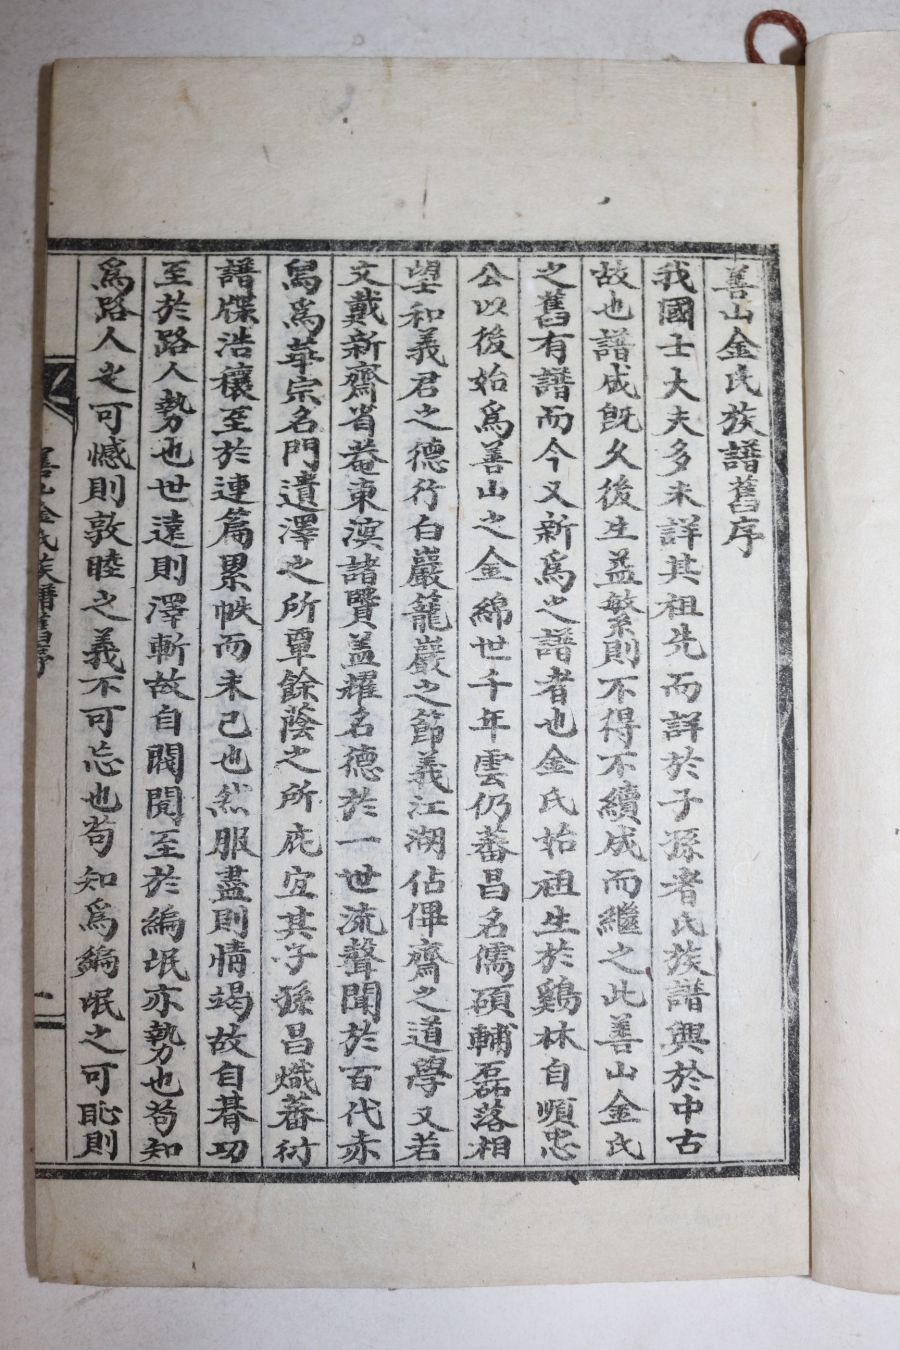 善山金氏族譜舊序
我國士大夫多未詳其祖先而詳於子孫者氏族譜興於中古
故也譜成旣久後生益繁則不得不續成而繼之此善山金氏
之舊有譜而今又新爲之譜者也金氏始祖生於鷄林自順忠
公以後始爲善山之金綿世千年雲仍蕃昌名儒碩輔磊落相
望和義君之德行白巖籠巖之節義江湖佔俾齋之道學又若
文戴新齋省菴東溟諸賢盖耀名德於一世流聲聞於百代赤
舃爲華宗名門遺澤之所覃餘蔭之所庇宜其子孫昌熾蕃衍
譜牒浩穰至於連篇累帙而未已也然服盡則情竭故自朞功
至於路人勢也世遠則澤斬故自閥閱至於編氓亦勢也苟知
爲路人之可慽則敦睦之義不可忘也苟知爲編氓之可恥則
善山金氏族譜舊序
一